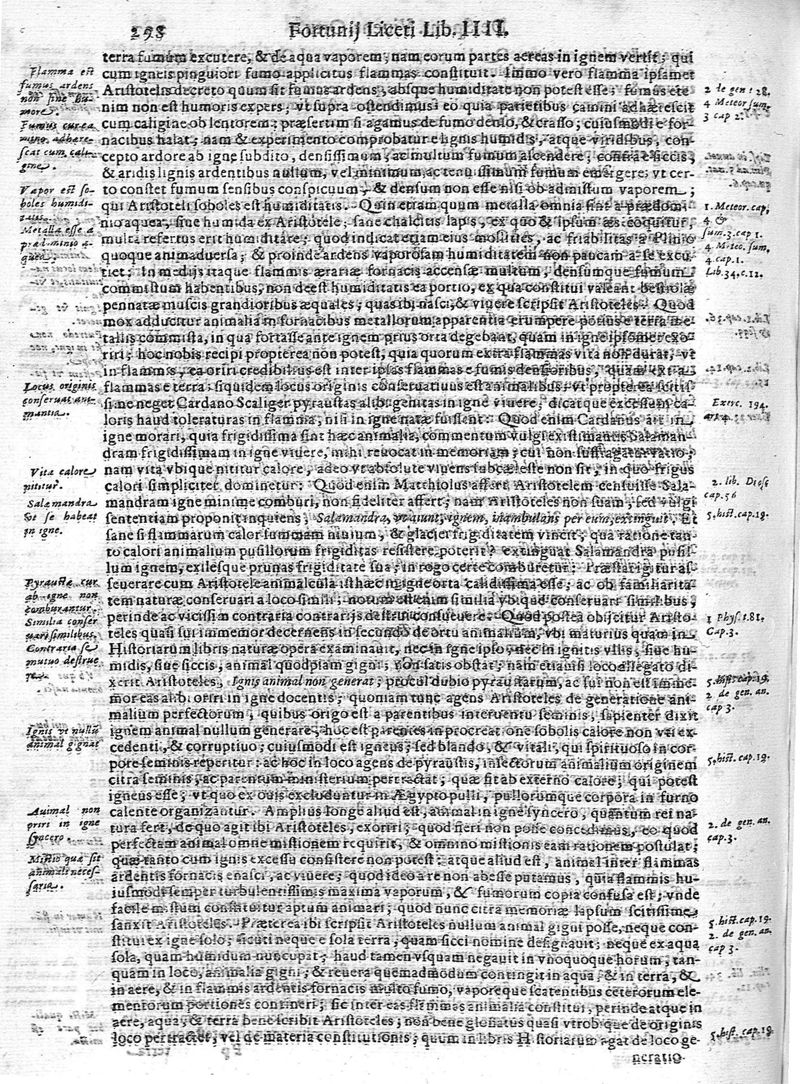 298
Fortunij Liceti Lib. IIII.
terra fumum excutere, & de aqua vaporem; nam eorum partes aereas in ignem vertit; qui
cum igneis pinguiori fumo applicitus flammas constituit. Immo vero flamma ipsamet
Aristotelis decreto quum sit fumus ardens, absque humiditate non potest esse; fumus ete
nim non est humoris expers; vt supra ostendimus; eo quia parietibus camini adhaerescit
cum caligine ob lentorem; praesertim si agamus de fumo denso, & crasso; cuiusmodi e for-
nacibus halat; nam & experimento comprobatur e lignis humidis, atque viridibus, con-
cepto ardore ab igne subdito, densissimum, ac multum fumum ascendere; contra e siccis,
& aridis lignis ardentibus nullum, vel minimum, ac tenuissimum fumum emergere; vt cer-
to constet fumum sensibus conspicuum, & densum non esse nisi ob admistum vaporem;
qui Aristoteli soboles est humiditatis. Quin etiam quum metalla omnia sint a praedomi-
nio aquea, siue humida ex Aristotele; sane chalcitis lapis, ex quo & ipsum aes coquitur,
multa refertus erit humiditate; quod indicat etiam eius mollities, ac friabilitas a Plinio
quoque animaduersa; & proinde ardens vaporosam humiditatem non paucam a se excu-
tiet; In medijs itaque flammis aerariae fornacis accensae multum, densumque fumum
commistum habentibus, non deest humiditatis ea portio, ex qua constitui valeant bestiolae
pennatae muscis grandioribus aequales; quas ibi nasci, & vigere scripsit Aristoteles. Quod
mox adducitur animalia in fornacibus metallorum apparentia erumpere potius e terra me-
tallis commista, in qua fortasse ante ignem prius orta degebant, quam in igne ipso mer exo-
riri; hoc nobis recipi propterea non potest, quia quorum extra flammas vita non durat, vt
in flammis, ea oriri credibilius est inter ipsas flammas e fumis densioribus, quam extra
flammas e terra: siquidem locus originis conseruatiuus est animalibus; vt propterea scitis
sime neget Cardano Scaliger pyraustas alibi genitas in igne viuere, dicatque excessum ca-
loris haud toleraturas in flamma, nisi in igne natae fuissent. Quod enim Cardanus ait in
igne morari, quia frigidissima sint haec animalia, commentum vulgi existimantis Salaman
dram frigidissimam in igne viuere, mihi reuocat in memoriam; cui non suffragatur ratio;
nam vita vbique nititur calore, adeo vt absolute viuens subcaeleste non sit, in quo frigus
calori simpliciter dominetur: Quod enim Matthiolus assert Aristotelem censuisse Sala-
mandram igne minime comburi, non fideliter affert; nam Aristoteles non suam, sed vulgi
sententiam proponit inquiens, Salamandra, vt aiunt, ignem, inambulans per eum, extinguit. Et
sane si flammarum calor summam niuium, & glaciei frigiditatem vincit, qua ratione tan-
to calori animalium pusillorum frigiditas resistere poterit? extinguat Salamandra pusil-
lum ignem, exilesque prunas frigiditate sua; in rogo certe comburetur: Praestat igitur as-
seuerare cum Aristotele animalcula isthaec in igne orta calidissima esse; ac ob familiarita
tem naturae conseruari a loco simili; notum est enim similia vbique conseruari similibus,
perinde ac vicissim contraria contrarijs destrui consueuere. Quod postea obijcitur Aristo-
teles quasi sui immemor decernens in secundo de ortu animalium, vbi maturius quam in
Historiarum libris naturae opera examinauit, nec in igne ipso, nec in ignitis vllis, siue hu-
midis, siue siccis, animal quodpiam gigni; non satis obstat; nam etiamsi loco allegato di-
xerit Aristoteles, Ignis animal non generat; procul dubio pyraustarum, ac sui non est imme-
mor eas alibi oriri in igne docentis; quoniam tunc agens Aristoteles de generatione ani-
malium perfectorum, quibus origo est a parentibus interuentu seminis, sapienter dixit
ignem animal nullum generare, hoc est parentes in procreatione sobolis calore non vti ex-
cedenti, & corruptiuo; cuiusmodi est igneus; sed blando, & vitali, qui spirituoso in cor-
pore seminis reperitur: ac hoc in loco agens de pyraustis, insectorum animalium originem
citra seminis, ac parentum ministerium pertractat; quae fit ab externo calore; qui potest
igneus esse; vt quo ex ouis excluduntur in AEgypto pulli, pullorumque corpora in furno
calente organizantur. Amplius longe aliud est, animal in igne syncero, quantum rei na-
tura fert, de quo agit ibi Aristoteles, exoriri; quod fieri non posse concedimus, eo quod
perfectam animal omne mistionem requirit, & omnino mistionis eam rationem postulat;
quae tanto cum ignis excessu consistere non potest: atque aliud est, animal inter flammas
ardentis fornacis enasci, ac viuere; quod ideo a re non abesse putamus, quia flammis hu-
iusmodi semper turbulentissimis maxima vaporum, & fumorum copia confusa est; vnde
facile mistum constituitur aptum animari; quod nunc citra memoriae lapsum scitissime
sanxit Aristoteles. Praeterea ibi scripsit Aristoteles nullum animal gigni posse, neque con-
stitui ex igne solo; sicuti neque e sola terra, quam sicci nomine designauit; neque ex aqua
sola, quam humidum nuncupat; haud tamen vsquam negauit in vnoquoque horum, tan-
quam in loco, animalia gigni; & reuera quemadmodum contingit in aqua, & in terra, &
in aere, & in flammis ardentis fornacis multo fumo, vaporeque scatentibus ceterorum ele-
mentorum portiones contineri; sic inter eas flammas animalia constitui, perinde atque in
aere, aqua, & terra bene scribit Aristoteles; non bene glossatus quasi vtrobique de originis
loco pertractet, vel de materia constitutionis; quum in libris Historiarum agat de loco ge-
neratio-
Flamma est
fumus ardens
non sine hu-
more.
Fumus cur ca
mino adhære-
scat cum cali-
gine.
Vapor est so-
boles humidi-
tatis.
Metalla esse a
prædominio a-
quea.
Locus originis
conseruat ani-
mantia.
Vita calore
nititur.
Salamandra
vt se habeat
in igne.
Pyraustæ cur
ab igne non
comburantur.
Similia conser
uari similibus,
Contraria se
mutuo destrue
re.
Ignis vt nullū
animal gignat
Animal non
oriri in igne
syncero.
Mistio quæ sit
animali neces-
saria.
2 de gen. 28,
4 Meteor sum.
3 cap 2.
1. Meteor. cap,
4 &
sum. 3. cap 1.
4 Meteo. sum,
4. cap. 1.
Lib. 34. c. 12.
Exerc. 194.
2. lib. Diosc
cap. 56
5. hist. cap. 19.
1 Phys. t. 81.
Cap. 3.
5. hist. cap. 19.
2 de gen. an.
cap 3.
5. hist. cap. 19.
2. de gen. an.
cap. 3.
5. hist. cap. 19.
2. de gen. an.
cap 3.
5. hist. cap. 19